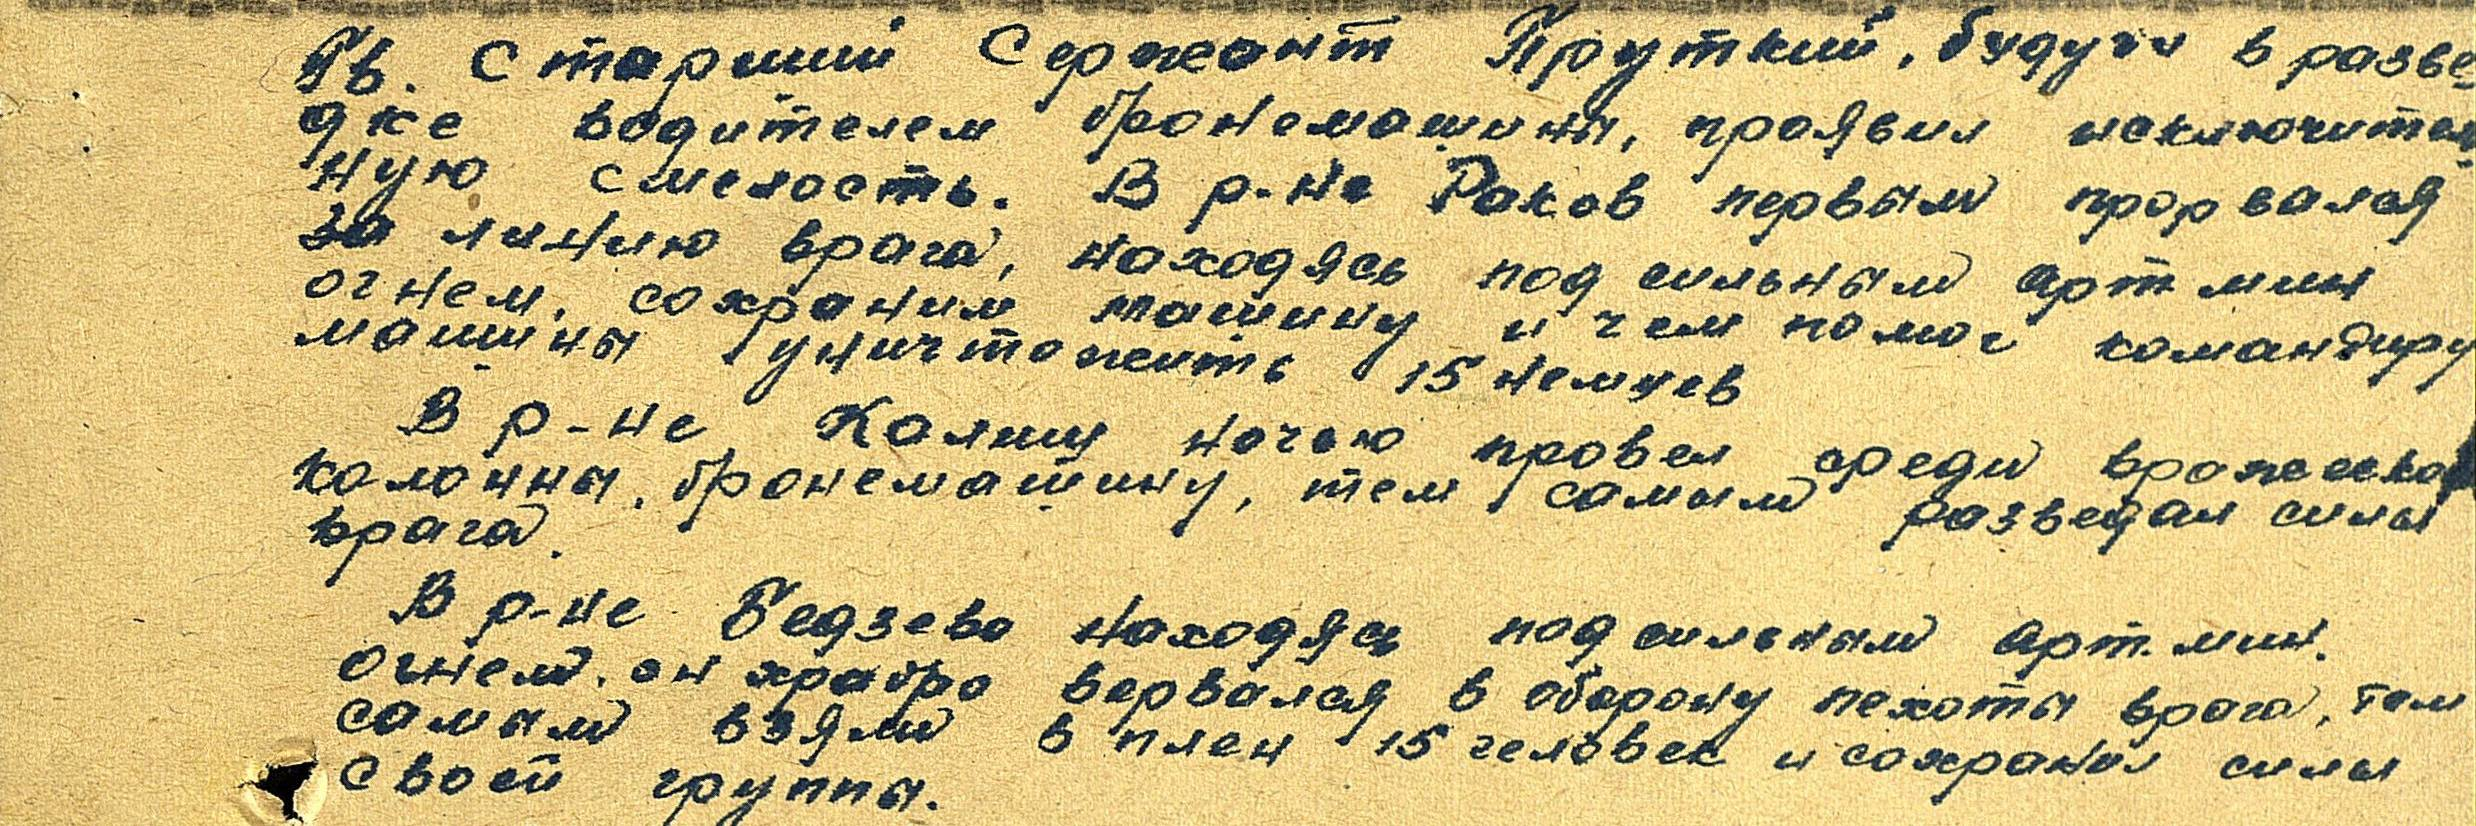 Гв. Старший Сержант Пруткий, будучи в разве-
дке водителем бронемашины, проявил исключитель-
ную смелость. В р-не Раков первым прорвался
за линию врага, находясь под сильным арт. мин
огнем, сохранил машину и чем помог командиру
машины уничтожить 15 немцев
В р-не Калиш ночью провел среди вражеской
колонны, бронемашину, тем самым разведал силы
врага.
В р-не Бедзево находясь под сильным арт. мин.
огнем, он храбро ворвался в оборону пехоты врага, тем
самым взяли в плен 15 человек и сохранил силы
своей группы.